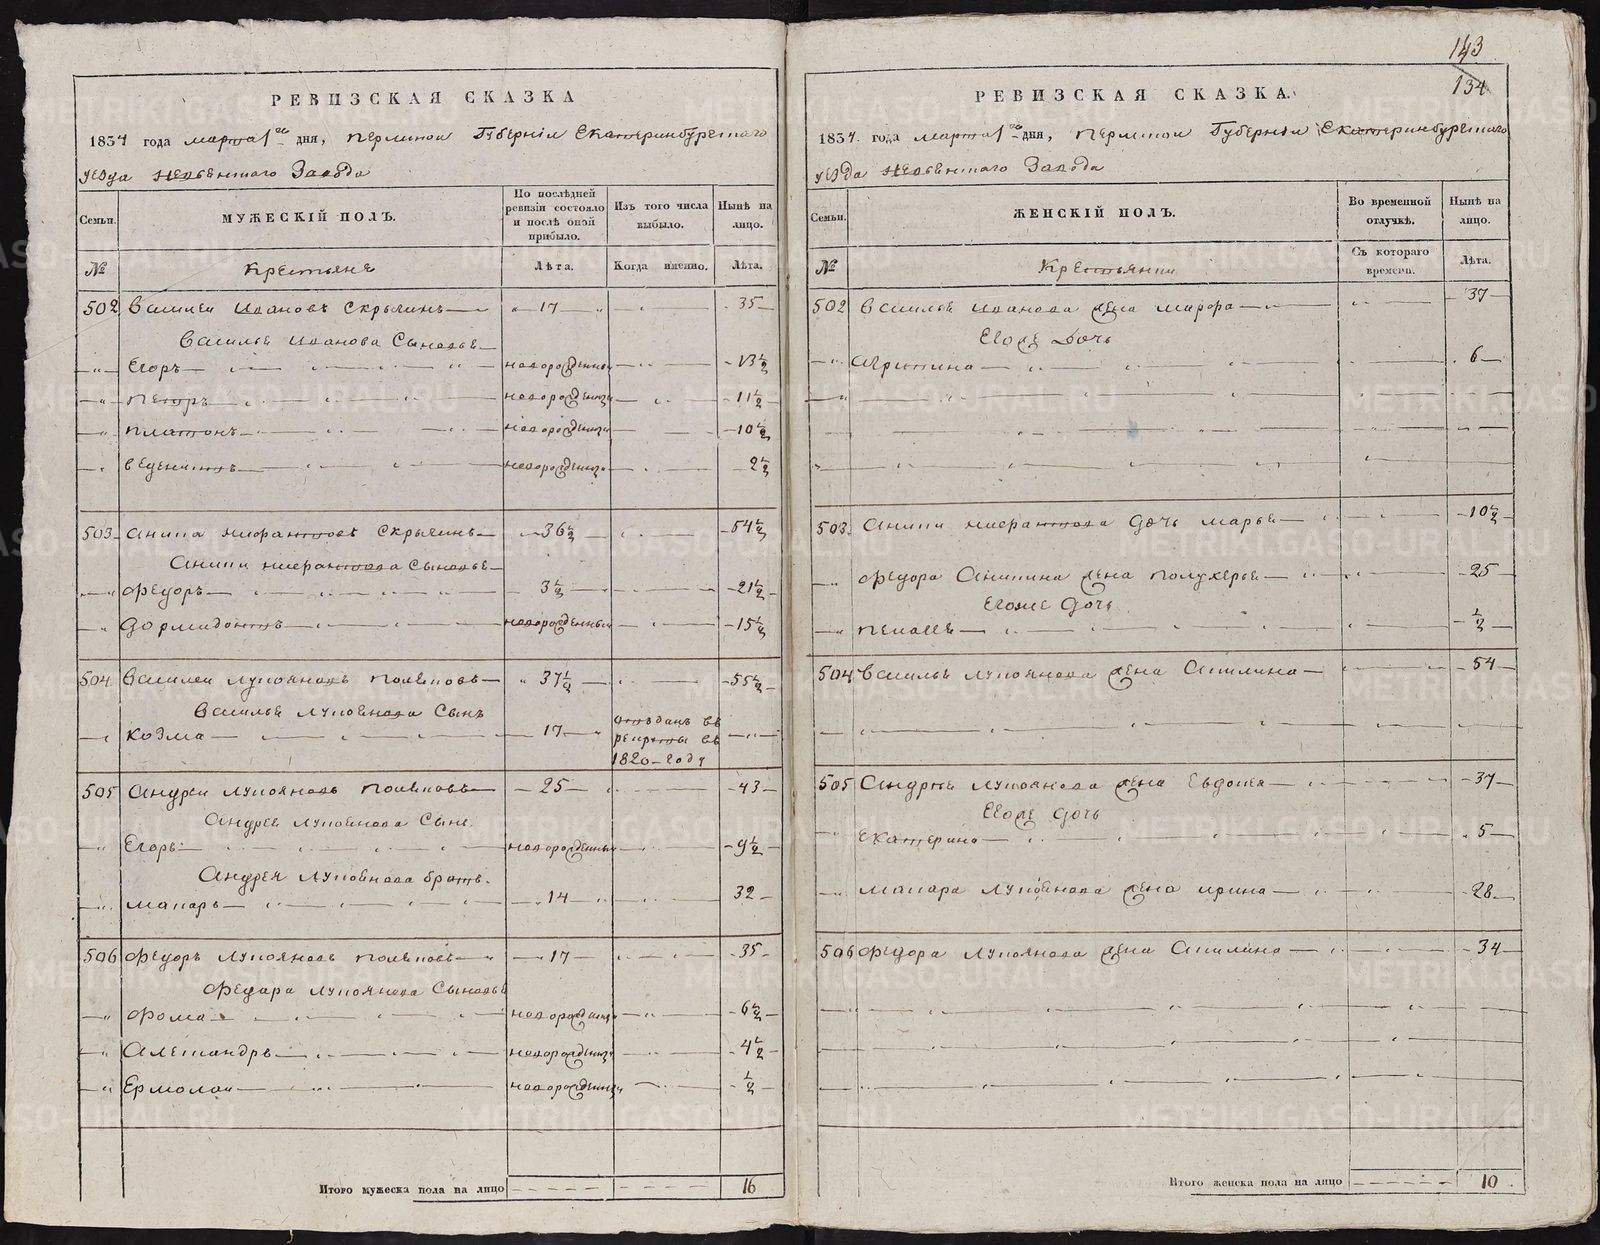 143
134
РЕВИЗСКАЯ СКАЗКА
1834 года марта 1го дня, Пермской Губернiи Екатеринбургскаго
уезда Невьенскаго Завода
Семьи.
МУЖЕСКIЙ ПОЛЪ.
По послѣдней ревизiи состояло и послѣ оной прибыло.
Изъ того числа выбыло.
Нынѣ на лицо.
№
Крестьяне
Лѣта.
Когда именно.
Лѣта.
502 Василеи Ивановъ Скрычинъ 17 35
Василья Иванова Сыновье
Егоръ новорожденнои 13 ½
Петръ новорожденнои 11 ½
Платонъ новорожденнои 10 ½
Веденихтъ новорожденнои 2 ½
503 Аника Никрантовъ Скрычинъ 36 ½ 54 ½
Аники Никрантова Сыновье
Федоръ 3 ½ 21 ½
Дормидонтъ новорожденныи 15 ½
504 Василеи Лупояновъ Полѣновъ 37 ½ 55 ½
Василья Лупоянова Сынъ
Козма 17 отъданъ въ рекруты въ 1820 году
505 Андреи Лупояновъ Полѣновъ 25 43
Андрея Лупоянова Сынъ
Егоръ новорожденныи 9 ½
Андрея Лупоянова братъ
Макаръ 14 32
506 Федоръ Лупояновъ Полѣновъ 17 35
Федара Лупоянова Сыновье
Фома новорожденныи 6 ½
Александръ новорожденныи 4 ½
Ермолаи новорожденныи ½
Итого мужеска пола на лицо 16
РЕВИЗСКАЯ СКАЗКА.
1834 года марта 1го дня, Пермской Губернiи Екатеринбургскаго
уезда Невьенскаго Завода
Семьи.
ЖЕНСКIЙ ПОЛЪ.
Во временной отлучкѣ.
Нынѣ на лицо.
№
Крестьянки
Съ котораго времени.
Лѣта.
502 Василья Иванова жена Марфа 37
Егоже Дочь
Агрипина 6
503 Аники Никрантова дочь Марья 10 ½
Федора Аникина жена Полухерья 25
Егоже дочь
Пелагея ½
504 Василья Лупоянова жена Акилина 54
505 Андрея Лупоянова жена Евдокея 37
Егоже дочь
Екатерина 5
Макара Лупоянова жена Ирина 28
506 Федора Лупоянова жена Акилина 34
Итого женска пола на лицо 10
METRIKI.GASO-URAL.RU